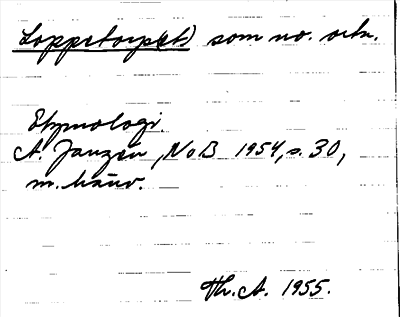 Loppetorp(et) som no. ortn.
Etymologi.
A. Janzén, NoB 1954, s. 30,
m. hänv.
Th. A. 1955.